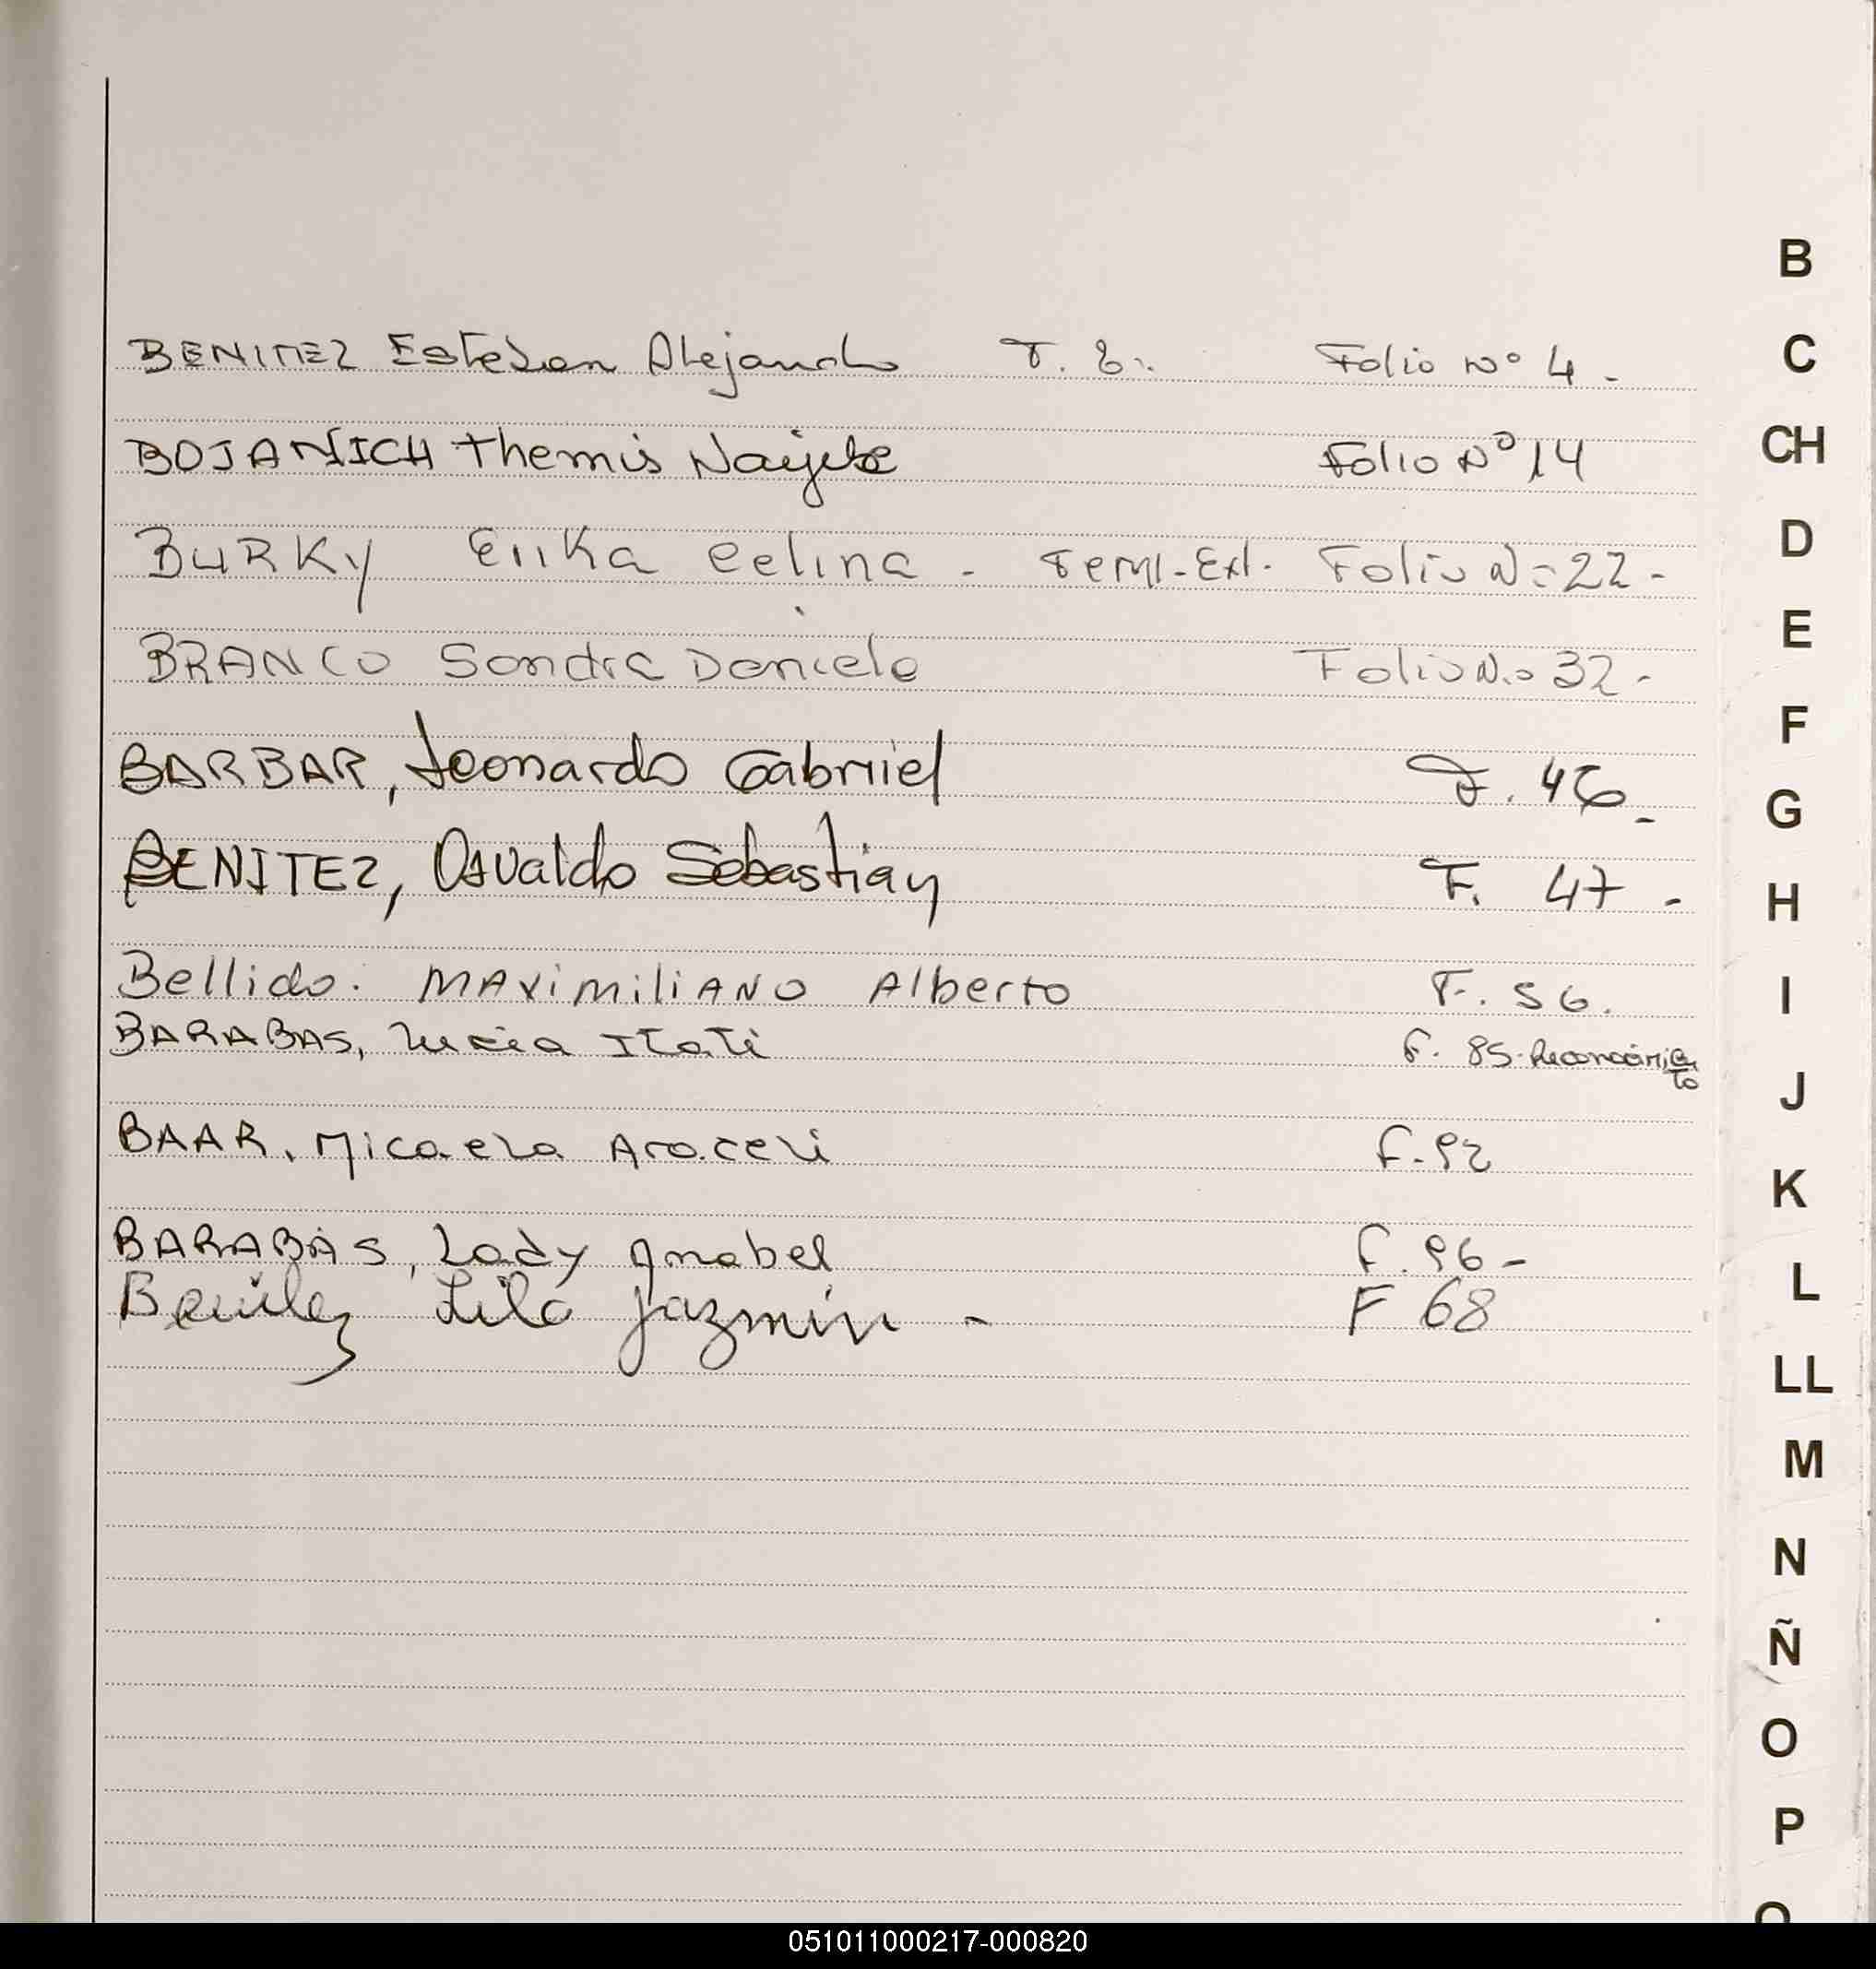 BENITEZ Esteban Alejandro T. E. Folio Nº 4 -
BOJANICH Themis Nayibe Folio Nº 14
BURKY Erika Celina - Ext. Folio Nº 22 -
BRANCO Sandra Daniela Folio Nº 32 -
BARBAR, Leonardo Gabriel F. 46 -
BENITEZ, Osvaldo Sebastian F. 47 -
Bellido. MAXimiliANO Alberto F. 56.
BARABAS, Lucia Itati F. 85.
BAAR, Micaela Araceli F. 92
BARABAS, Lady Anabel F. 96 -
Benitez Lila Jazmin - F 68
B
C
CH
D
E
F
G
H
I
J
K
L
LL
M
N
Ñ
O
P
051011000217-000820